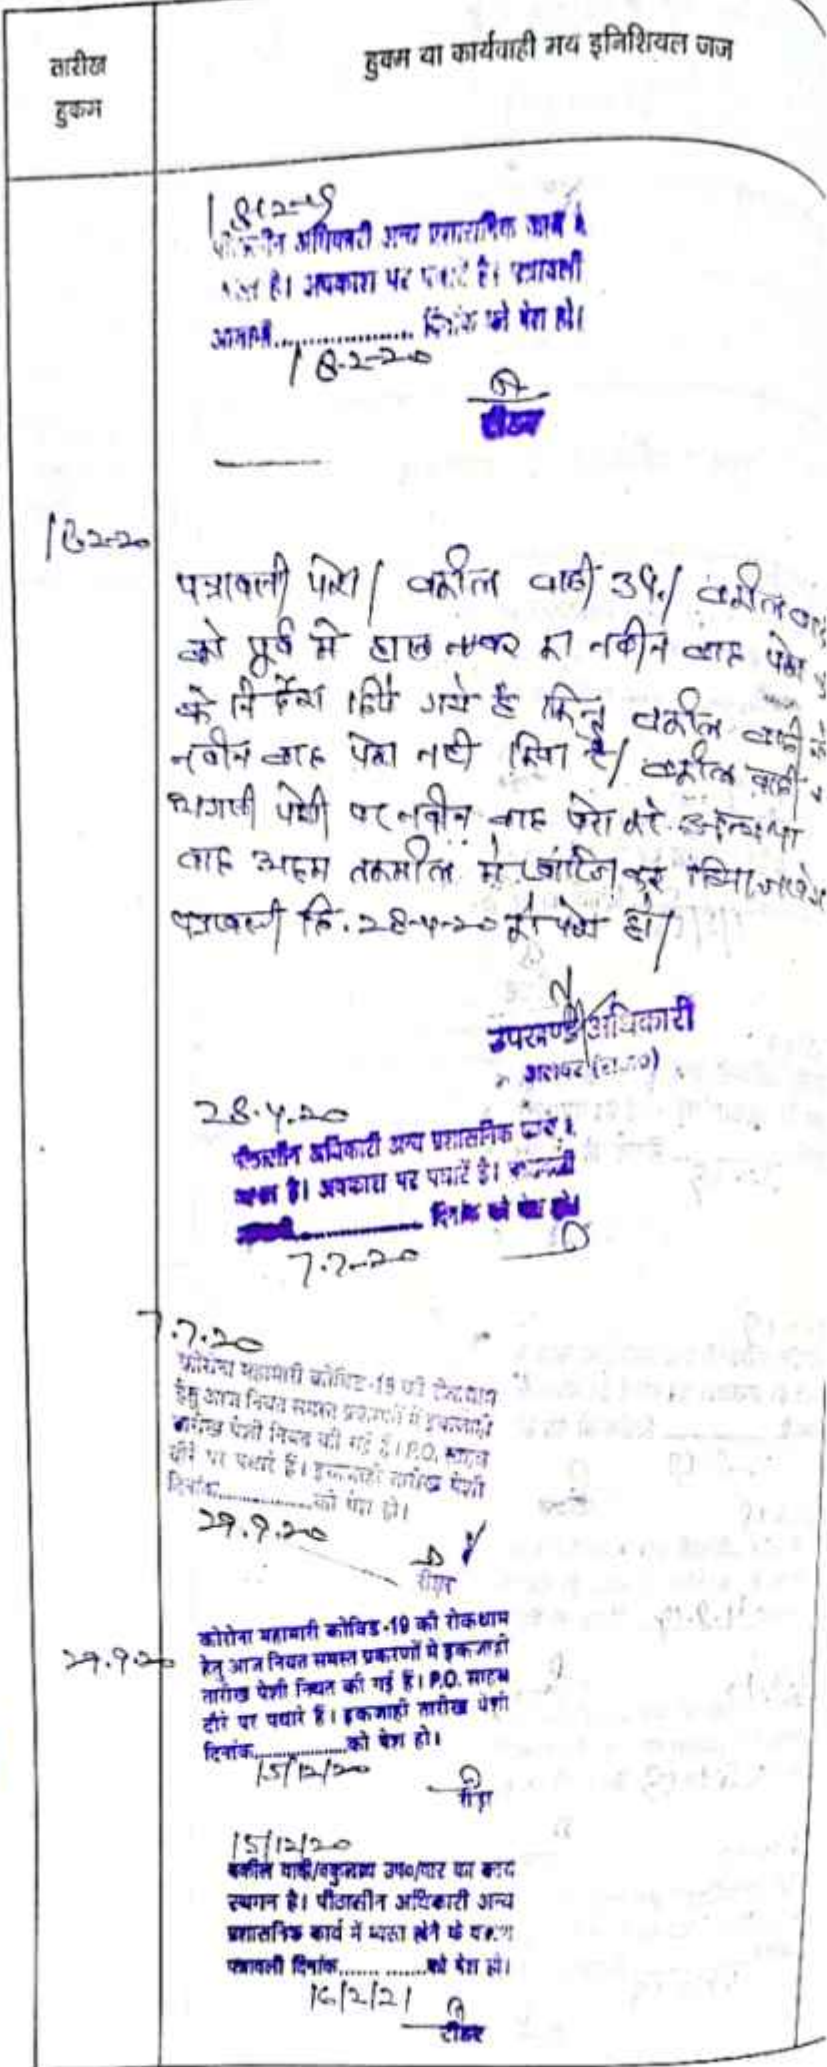 तारीख
हुकम
हुक्म या कार्यवाही मय इनिशियल जज
अधिकारी अन्य प्रशासनिक कार्य
है। अवकाश पर पधारें है। पत्रावली
आगामी.................... दिनांक को पेश हो।
18-2-20
रीडर
18-2-20
पत्रावली पेश। वकील वादी उप.। वकील वादी
को पूर्व में का नवीन वाद पेश
के निर्देश दिये गये है किन्तु वकील वादी ने
नवीन वाद पेश नही किया है। वकील वादी
आगामी पेशी पर नवीन वाद पेश करे अन्यथा
वाद अदम तकमील मे खारिज कर दिया जावेगा
पत्रावली दि. 28-4-20 को पेश हो।
उपखण्ड अधिकारी
अलवर (राज0)
28.4.20
पीठासीन अधिकारी अन्य प्रशासनिक कार्य में
व्यस्त है। अवकाश पर पधारें है। पत्रावली
.................... दिनांक को पेश हो।
7.7.20
7.7.20
कोरोना महामारी कोविड-19 की रोकथाम
हेतु आज नियत समस्त प्रकरणों में इकजाही
तारीख पेशी नियत की गई है। P.O. साहब
दौरे पर पधारे हैं। इकजाही तारीख पेशी
दिनांक....................को पेश हो।
29.9.20
रीडर
29.9.20
कोरोना महामारी कोविड-19 की रोकथाम
हेतु आज नियत समस्त प्रकरणों में इकजाही
तारीख पेशी नियत की गई है। P.O. साहब
दौरे पर पधारे हैं। इकजाही तारीख पेशी
दिनांक....................को पेश हो।
15/12/20
रीडर
15/12/20
वकील वादी/वकुलाय उप0/बार का कार्य
स्थगन है। पीठासीन अधिकारी अन्य
प्रशासनिक कार्य में व्यस्त होने के कारण
पत्रावली दिनांक....... .......को पेश हो।
16/2/21
रीडर